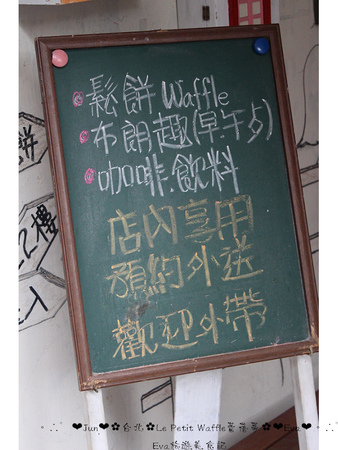 鬆餅 Waffle
布朗趣(早.午夕)
咖啡.飲料
店內享用
預約外送
歡迎外帶
餅
2樓
❤Jun❤✿台北✿Le Petit Waffle
❤Eva❤